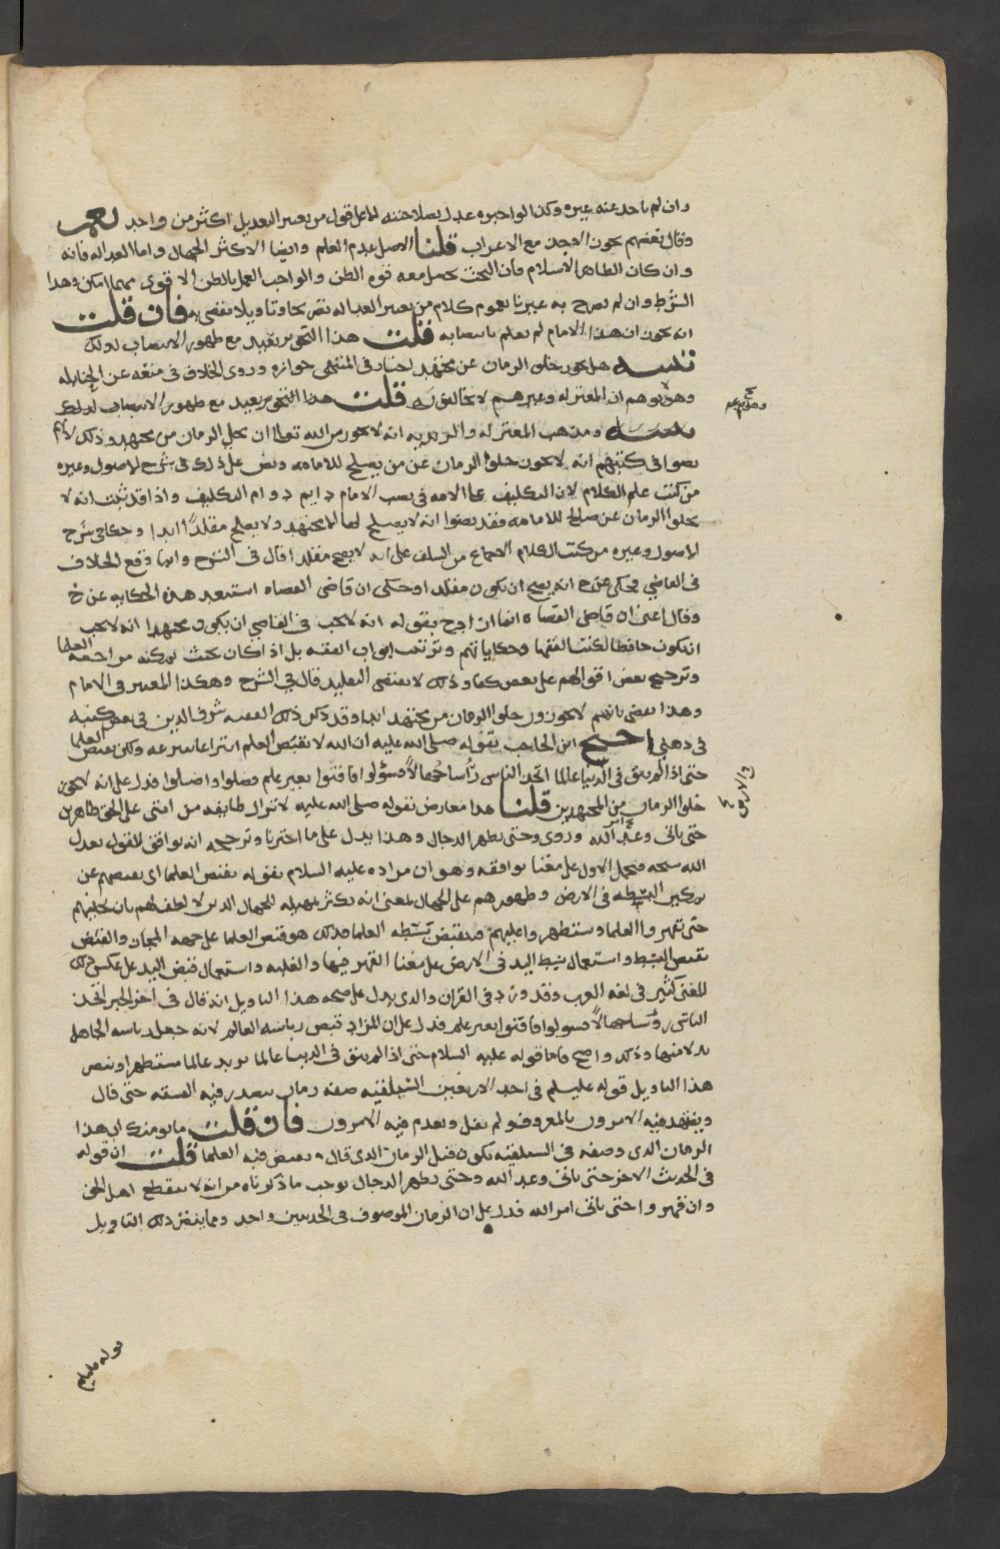 وان لم ياخذ عنه غيره وكذا لو اخبره عدل بصلاحيته الا على قول من يعتبر التعديل اكثر من واحد نعم
وقال بعضهم يجوز الاخذ مع الاعراب قلنا الاصل عدم العلم وايضا الاكثر الجهال واما العداله فانه
وان كان الظاهر الاسلام فان البحث يحصل معه قوة الظن والواجب العمل بالظن الاقوى مهما امكن وهذا
الشرط وان لم يصرح به غيرنا فعموم كلام من يعتبر العداله نصريحا وتاويلا يقضي به فان قلت
انه يجوز ان هذا الامام لم يعلم بانتصابه قلت هذا التجويز بعيد مع ظهور الانتصاب لذلك
تنبيه هل يجوز خلو الزمان عن مجتهد اختار في المنتهى جوازه وروى الخلاف في منعه عن الحنابله
وهو يوهم ان المعتزله وغيرهم لا تخالف فيه قلت هذا التجويز بعيد مع ظهور الانتصاب لذلك
ومذهب المعتزله والزيديه انه لا يجوز من الله تعالى ان يخلي الزمان من مجتهد وذلك لانهم
نصوا في كتبهم انه لا يجوز خلو الزمان عن من يصلح للامامه ونص على ذلك في شرح الاصول وغيره
من كتب علم الكلام لان التكليف على الامه في نصب الامام دايم بدوام التكليف واذا قد ثبت انه لا
يخلوا الزمان عن صالح للامامه فقد نصوا انه لا يصلح لها الا مجتهد ولا يصلح مقلدًا ابدا وحكا في شرح
الاصول وغيره من كتب الكلام الاجماع من السلف على انه لا يصح مقلدا قال في الشرح وانما وقع الخلاف
في القاضي فحكى عن ح انه يصح ان يكون مقلدا وحكى ان قاضي القضاه استبعد هذه الحكايه عن ح
وقال اعني قاضي القضاة انما اراد ح بقوله انه لا يجب في القاضي ان يكون مجتهدا انه لا يجب
ان يكون حافظا لكتب الفقها وحكاياتهم وترتيب ابواب الفقه بل اذا كان بحيث يمكنه مراجعة العلما
وترجيح بعض اقوالهم على بعض كفا وذلك لا يقتضي التقليد قال في الشرح وهكذا المعتبر في الامام
وهذا يقضي بانهم لا يجوزون خلو الزمان من مجتهد ابدا وقد ذكر ذلك الفقيه شرف الدين في بعض كتبه
احتج ابن الحاجب بقوله صلى الله عليه ان الله لا يقبض العلم انتزاعا ينتزعه ولكن بقبض العلما
حتى اذا لم يبق في الدنيا عالما اتخذ الناس رؤسا جهالًا فسؤلوا فافتوا بغير علم فضلوا واضلوا فدل على انه لا يجوز
خلو الزمان من المجتهدين قلنا هذا معارض بقوله صلى الله عليه لا تزال طايفه من امتي على الحق ظاهرين
حتى ياتي وعد الله وروي وحتى يظهر الدجال وهذا يدل على ما اخترنا وترجيحه انه يوافق القول بعدل
الله سبحه فيحمل الاول على معنا يوافقه وهو ان مراده عليه السلام بقوله بقبض العلما اي بقبضهم عن
تمكين البسطه في الارض وظهورهم على الجهال بمعنى انه يكثر تمهيله للجهال الذين لا لطف لهم بان يخليهم
حتى تقهروا العلما ويستظهروا عليهم فينقبض بسطه العلما فذلك هو قبض العلما على جهة المجاز والقبض
نقيض البسط واستعمال بسط اليد في الارض على معنا القهر فيها والغلبه واستعمال قبض اليد على عكس ذلك
المعنى كثير في لغه العرب وقد ورد في القران والذي يدل على صحه هذا التاويل انه قال في اخر الخبر اتخذ
الناس رؤسا جهالًا فسولوا فافتوا بغير علم فدل على ان المراد قبض رياسه العالم لانه جعل رياسه الجاهل
بدلا منها وذلك واضح فاما قوله عليه السلام حتى اذا لم يبق في الدنيا عالما يريد عالما مستظهرا ويعضد
هذا التاويل قوله عليسلم في احد الاربعين السيلقيه صفه زمان يتعذر فيه الفسقه حتى قال
ويضطهد فيه الامرون بالمعروف ولم يقل ويعدم فيه الامرون فان قلت ما يومنك ان هذا
الزمان الذي وصفه في السيلقيه يكون قبل الزمان الذي قال يقبض فيه العلما قلت ان قوله
في الحديث الاخر حتى ياتي وعد الله وحتى يظهر الدجال يوجب ما ذكرناه من انه لا ينقطع اهل الحق
وان قهروا حتى ياتي امر الله فدل على ان الزمان الموصوف في الحديثين واحد ومما ينصر ذلك التاويل
قوله عليلم